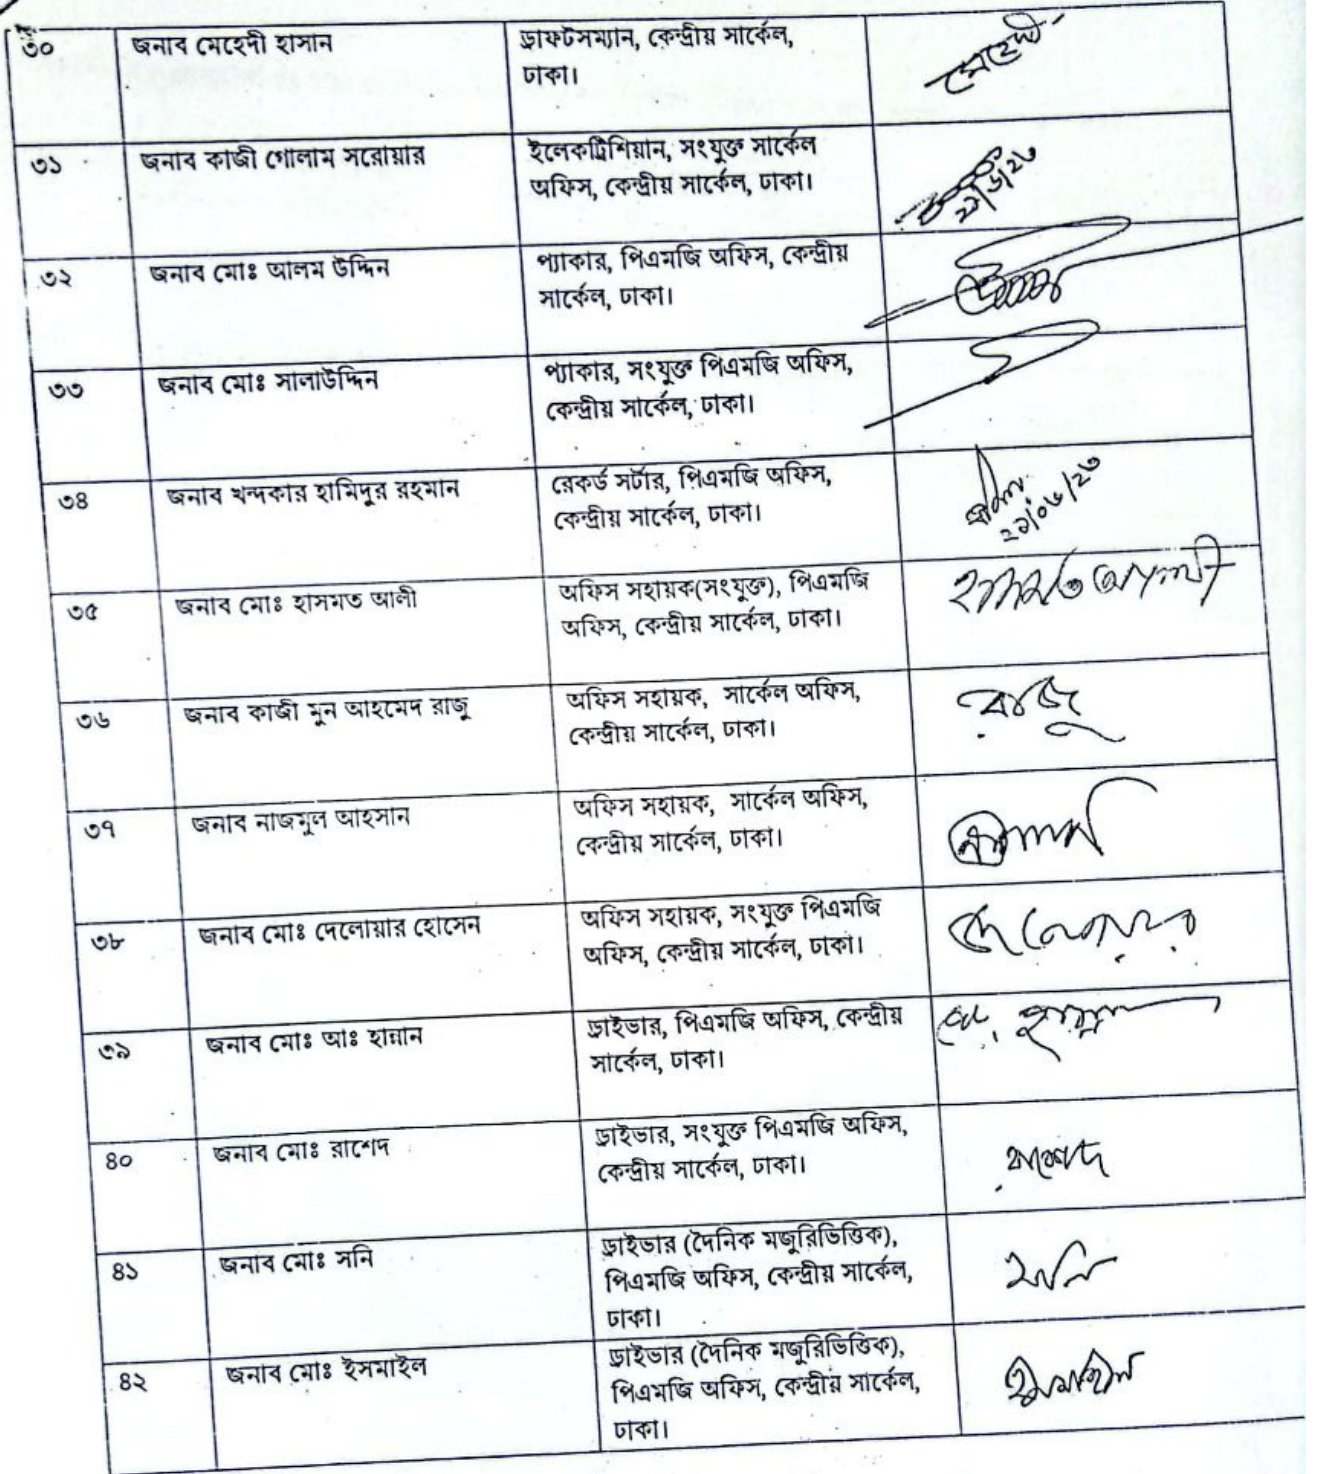 ৩০ জনাব মেহেদী হাসান ড্রাফটসম্যান, কেন্দ্রীয় সার্কেল,
ঢাকা।
মেহেদী
৩১ জনাব কাজী গোলাম সরোয়ার ইলেকট্রিশিয়ান, সংযুক্ত সার্কেল
অফিস, কেন্দ্রীয় সার্কেল, ঢাকা।
৩২ জনাব মোঃ আলম উদ্দিন প্যাকার, পিএমজি অফিস, কেন্দ্রীয়
সার্কেল, ঢাকা।
৩৩ জনাব মোঃ সালাউদ্দিন প্যাকার, সংযুক্ত পিএমজি অফিস,
কেন্দ্রীয় সার্কেল, ঢাকা।
৩৪ জনাব খন্দকার হামিদুর রহমান রেকর্ড সর্টার, পিএমজি অফিস,
কেন্দ্রীয় সার্কেল, ঢাকা।
৩৫ জনাব মোঃ হাসমত আলী অফিস সহায়ক(সংযুক্ত), পিএমজি
অফিস, কেন্দ্রীয় সার্কেল, ঢাকা।
হাসমত আলী
৩৬ জনাব কাজী মুন আহমেদ রাজু অফিস সহায়ক, সার্কেল অফিস,
কেন্দ্রীয় সার্কেল, ঢাকা।
রাজু
৩৭ জনাব নাজমুল আহসান অফিস সহায়ক, সার্কেল অফিস,
কেন্দ্রীয় সার্কেল, ঢাকা।
৩৮ জনাব মোঃ দেলোয়ার হোসেন অফিস সহায়ক, সংযুক্ত পিএমজি
অফিস, কেন্দ্রীয় সার্কেল, ঢাকা।
দেলোয়ার
৩৯ জনাব মোঃ আঃ হান্নান ড্রাইভার, পিএমজি অফিস, কেন্দ্রীয়
সার্কেল, ঢাকা।
৪০ জনাব মোঃ রাশেদ ড্রাইভার, সংযুক্ত পিএমজি অফিস,
কেন্দ্রীয় সার্কেল, ঢাকা।
রাশেদ
৪১ জনাব মোঃ সনি ড্রাইভার (দৈনিক মজুরিভিত্তিক),
পিএমজি অফিস, কেন্দ্রীয় সার্কেল,
ঢাকা।
সনি
৪২ জনাব মোঃ ইসমাইল ড্রাইভার (দৈনিক মজুরিভিত্তিক),
পিএমজি অফিস, কেন্দ্রীয় সার্কেল,
ঢাকা।
ইসমাইল